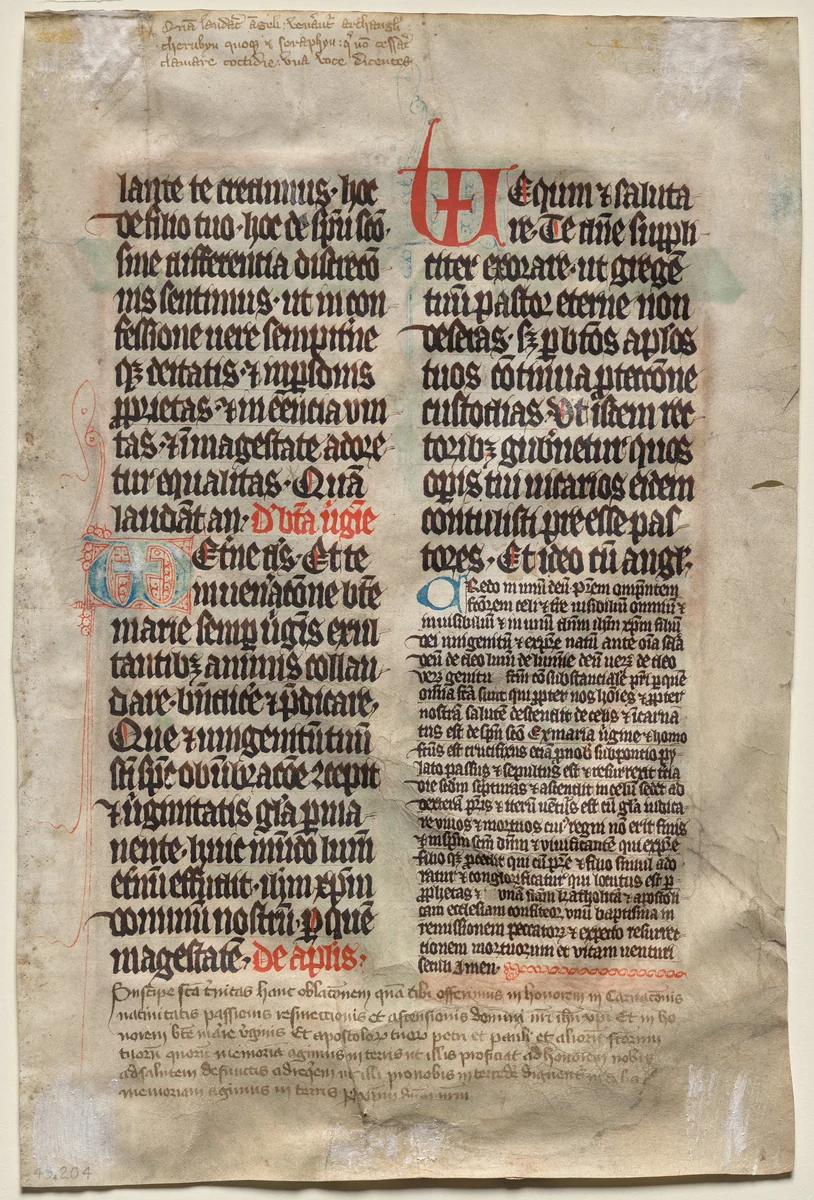 Quā laudāt āgeli: venerāt archāgli
cherubyn quoqꝫ ⁊ seraphyn: q̄ nō cessāt
clamare cottidie: vna voce dicentes
lante te credimus· hoc
de filio tuo· hoc de spū sc̄o·
sine differentia discrecō
nis sentimus· ut in con
fessione uere sempitn̄e
qꝫ deitatis· ⁊ in ꝑsonis
ꝓprietas· ⁊ in eēncia vni
tas· ⁊ ī magestate adore
tur equalitas· Quā
laudāt an· D' bt̄a ūgīe
Et̄ne d's· Et te
in uen̄acōne bt̄e
marie semꝑ ūgīs exul
tantibꝫ animis collau
dare· bn̄dicē ⁊ p̄dicare·
Que ⁊ unigenitū tuū
sc̄i sp̄c obūbracōe ꝯcepit
⁊ ūginitatis gl̄a ꝑma
nente· huic mūdo lum̄
et̄nū effudit· ih̄m xp̄m
dominū nostrū· ꝑ quē
magestatē· De aplis·
Equm ⁊ saluta
re· Te dn̄e suppli
citer exorare· ut gregē
tuū pastor eterne non
deseras· sꝫ ꝑ bt̄os ap̄los
tuos cōtinua ꝓtectōne
custodias· Vt iisdem rec
toribꝫ gub̄netur quos
oꝑis tui uicarios eidem
contulisti preesse pas
tores· Et ideo cū angl'·
CRedo in unū deū p̄rem omp̄ntem
fc̄orem celi ⁊ t̄re uisibiliū omniū ⁊
inuisibiliū ⁊ in unū dn̄m ih̄m xp̄m filiū
dei unigenitū ⁊ ex p̄re natū ante oīa sc̄la
deū de deo lum̄ de lumīe deū uerū de deo
vero genitū fc̄m cōsubstancialē p̄ri ꝑ quē
omīa fc̄a sunt qui ꝓpter nos hoīes ⁊ ꝓpter
nostrā salutē descendit de celis ⁊ īcarna
tus est de spū sc̄o Ex maria ūgine ⁊ homo
fc̄us est crucifixus eciā ꝓ nob' sub pontio py
lato passus ⁊ sepultus est ⁊ resurrexit t̄cia
die sc̄dm sc̄pturas ⁊ ascendit in celū sedet ad
dexterā p̄ris ⁊ iterū uent̄us est cū gl̄a iudica
re viuos ⁊ mortuos cui' regni nō erit finis
⁊ in sp̄m sc̄m dn̄m ⁊ viuificantē qui ex p̄re
filio qꝫ ꝓcedit qui cū p̄re ⁊ filio simul ado
ratur ⁊ conglorificatur qui locutus est ꝑ
ꝓphetas ⁊ vnā sc̄am katholicā ⁊ apostoli
cam ecclesiam confiteor vnū baptisma in
remissionem peccatoꝝ ⁊ expecto resurrec
tionem mortuorum et vitam venturi
seculi Amen·
Suscipe sc̄a t̄nitas hanc oblac̄onem quā tibi offerimus in honorem in Carnac̄onis
natiuitatis passionis resurrectionis et ascensionis domini nr̄i ih̄u xp̄i Et in ho
norem bt̄e marie v̄ginis Et apostoloꝝ tuoꝝ petri et pauli et alioꝝ sc̄orum
tuoꝝ quoꝝ memoria agimus in terris ut illis proficiat ad honorem nobis
ad salutem defunctis ad reqēm ut illi pro nobis in tercedē
memoriam agimus in terris
43.204